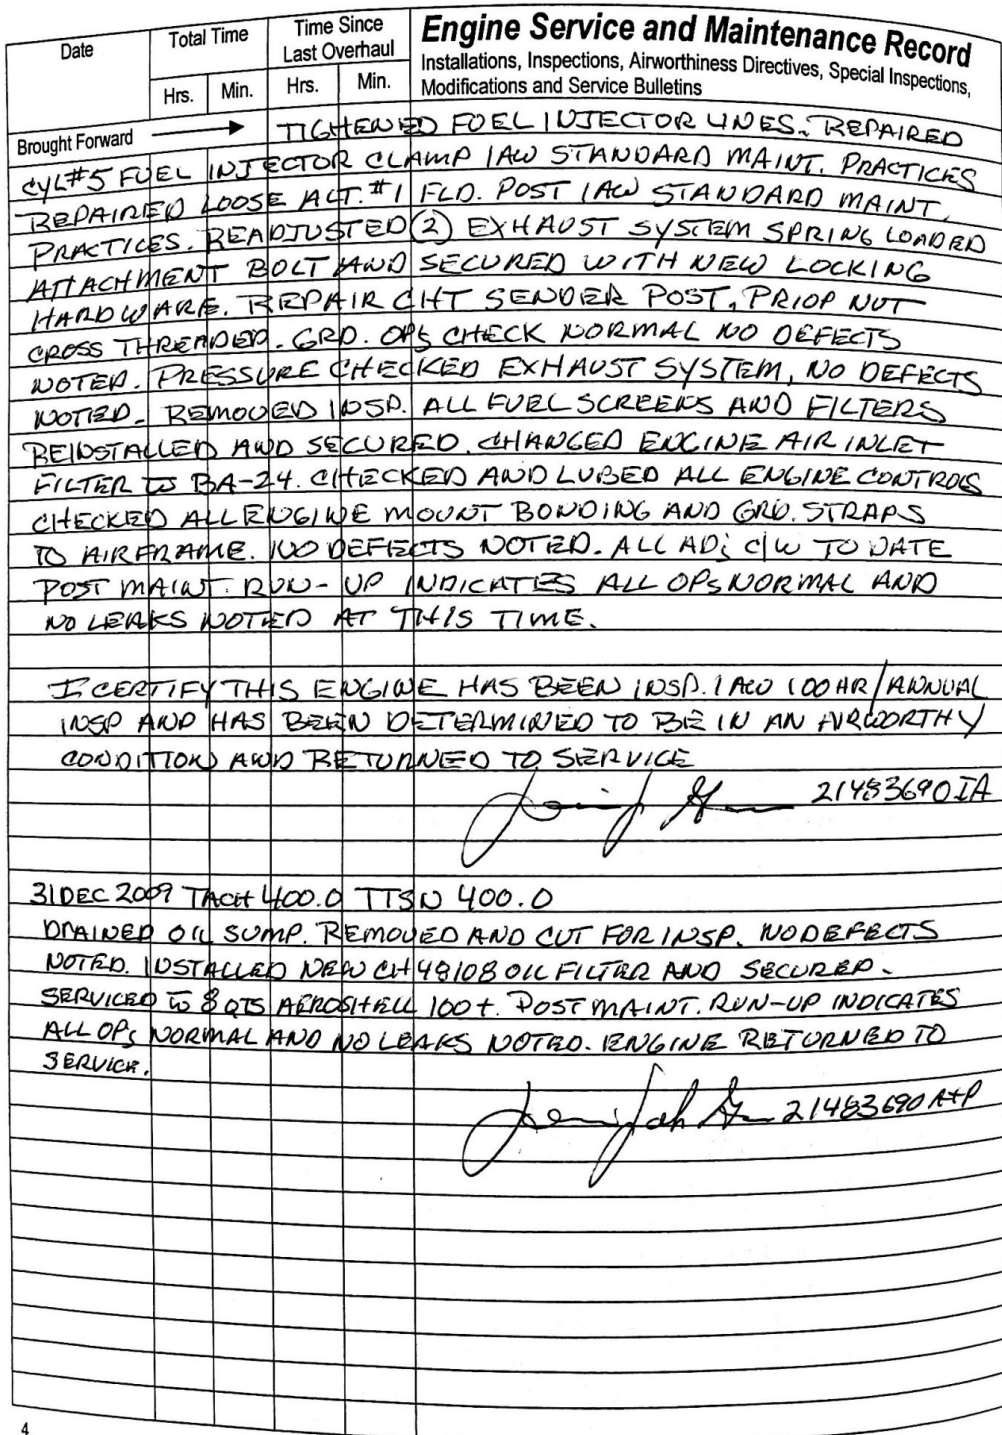 Date
Total Time
Time Since
Last Overhaul
Engine Service and Maintenance Record
Installations, Inspections, Airworthiness Directives, Special Inspections,
Modifications and Service Bulletins
Hrs. Min. Hrs. Min.
Brought Forward TIGHTENED FUEL INJECTOR LINES. REPAIRED
CYL#5 FUEL INJECTOR CLAMP IAW STANDARD MAINT. PRACTICES
REPAIRED LOOSE ALT. #1 FLD. POST IAW STANDARD MAINT.
PRACTICES. READJUSTED (2) EXHAUST SYSTEM SPRING LOADED
ATTACHMENT BOLT AND SECURED WITH NEW LOCKING
HARDWARE. REPAIR CHT SENDER POST, PRIOR NUT
CROSS THREADED. GRD. OPS CHECK NORMAL NO DEFECTS
NOTED. PRESSURE CHECKED EXHAUST SYSTEM, NO DEFECTS
NOTED. REMOVED INSP. ALL FUEL SCREENS AND FILTERS
REINSTALLED AND SECURED. CHANGED ENGINE AIR INLET
FILTER TO BA-24. CHECKED AND LUBED ALL ENGINE CONTROLS
CHECKED ALL ENGINE MOUNT BONDING AND GRD. STRAPS
TO AIRFRAME. NO DEFECTS NOTED. ALL ADs C/W TO DATE
POST MAINT. RUN-UP INDICATES ALL OPS NORMAL AND
NO LEAKS NOTED AT THIS TIME.
I CERTIFY THIS ENGINE HAS BEEN INSP. IAW 100 HR/ANNUAL
INSP AND HAS BEEN DETERMINED TO BE IN AN AIRWORTHY
CONDITION AND RETURNED TO SERVICE
21483690 IA
31 DEC 2009 TACH 400.0 TTSN 400.0
DRAINED OIL SUMP. REMOVED AND CUT FOR INSP. NO DEFECTS
NOTED. INSTALLED NEW CH48108 OIL FILTER AND SECURED.
SERVICED TO 8 QTS AEROSHELL 100+. POST MAINT. RUN-UP INDICATES
ALL OPS NORMAL AND NO LEAKS NOTED. ENGINE RETURNED TO
SERVICE.
21483690 A+P
4